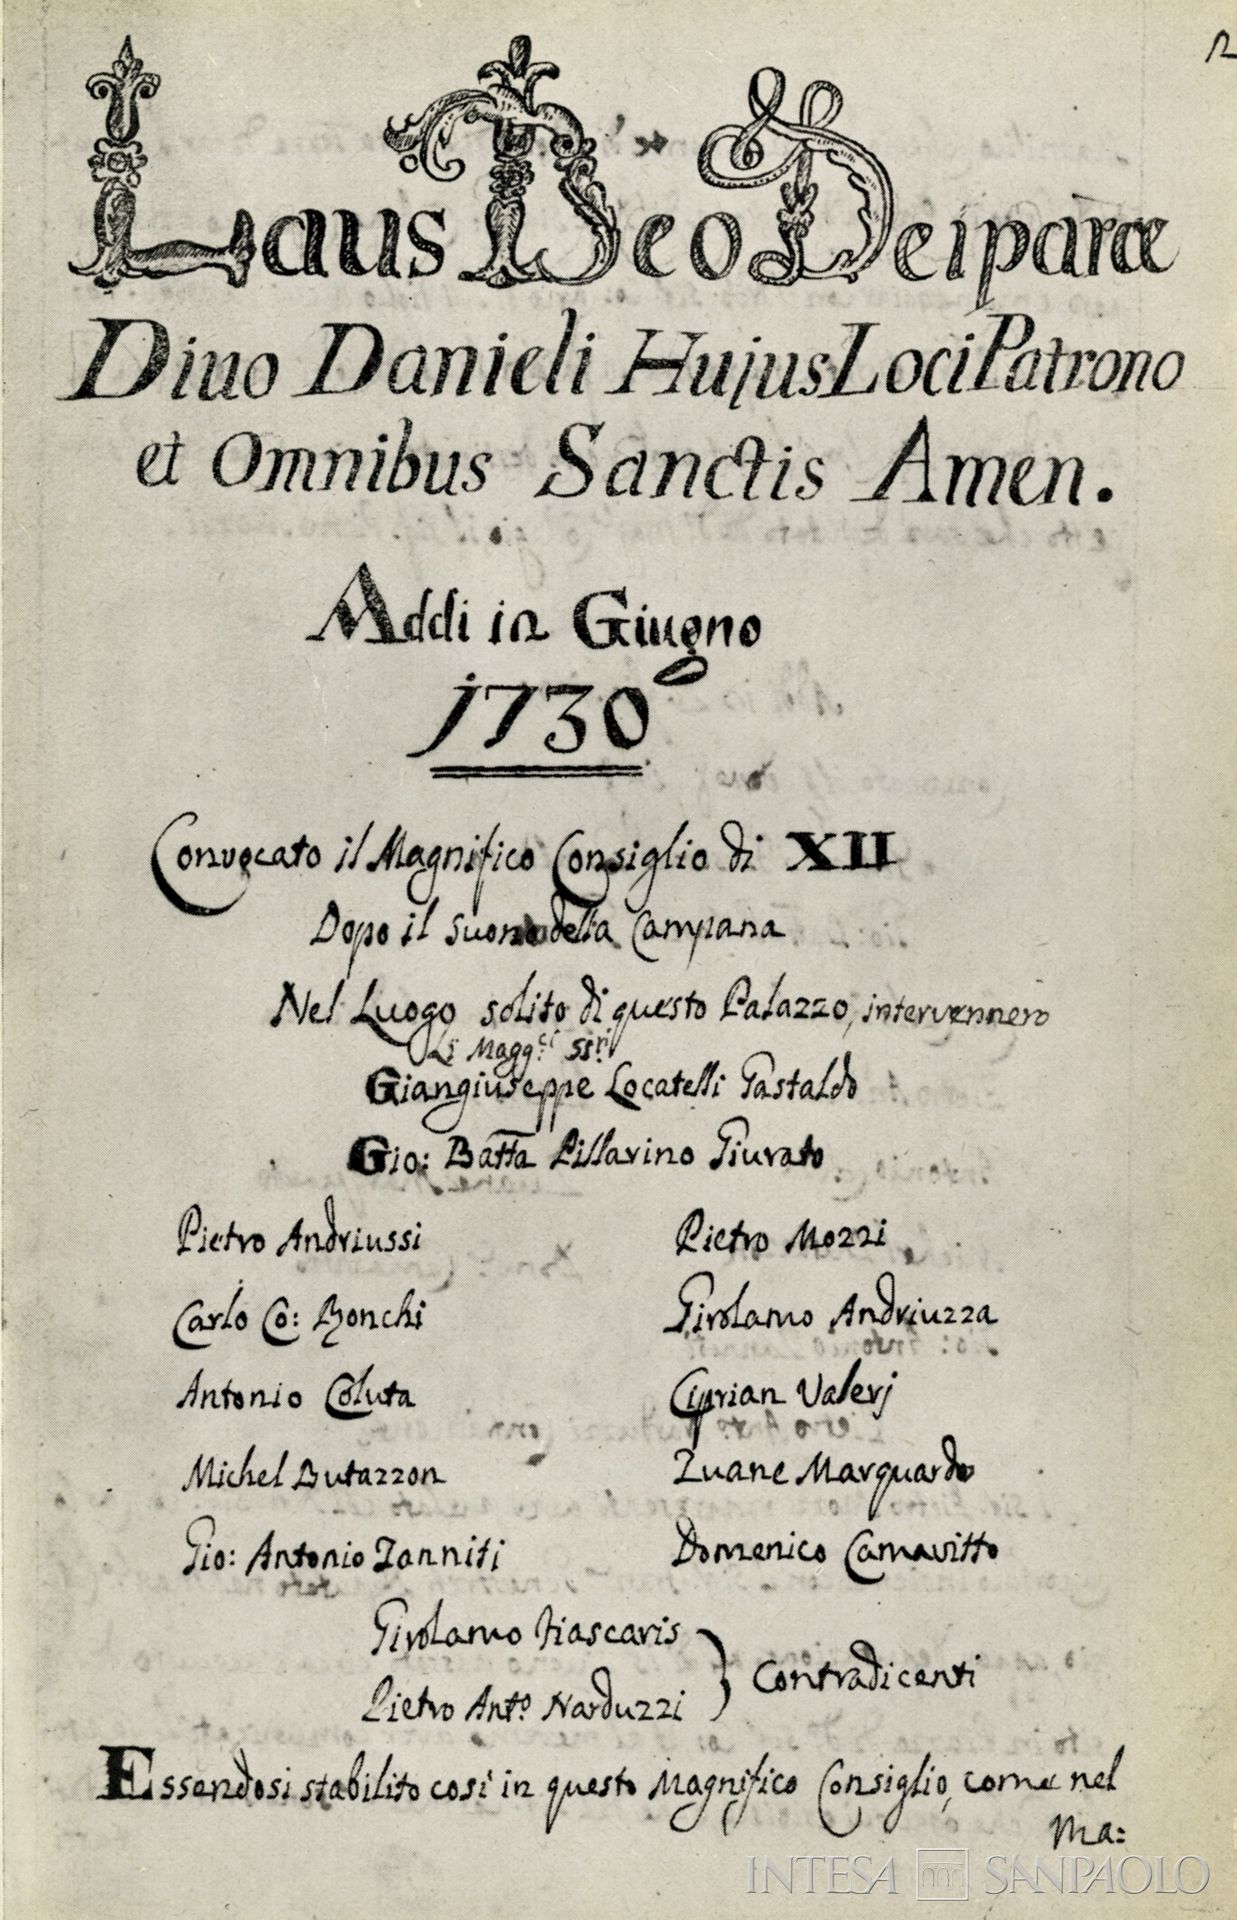 12
Laus Deo Deiparæ
Diuo Danieli Hujus Loci Patrono
et Omnibus Sanctis Amen.
Addi in Giugno
1730
Convocato il Magnifico Consiglio di XII
Dopo il suono della Campana
Nel Luogo solito di questo Palazzo, intervennero
Li Magg.ci SS.ri
Giangiuseppe Locatelli Gastaldo
Gio: Batta Pillarino Giurato
Pietro Andriussi
Pietro Mozzi
Carlo Co: Ronchi
Girolamo Andriuzza
Antonio Coluta
Ciprian Valerj
Michel Butazzon
Zuane Marquardo
Gio: Antonio Zanniti
Domenico Camavitto
Girolamo Fiascaris
Pietro Ant.o Narduzzi
Contradicenti
Essendosi stabilito così in questo Magnifico Consiglio, come nel
Ma:
INTESA SANPAOLO